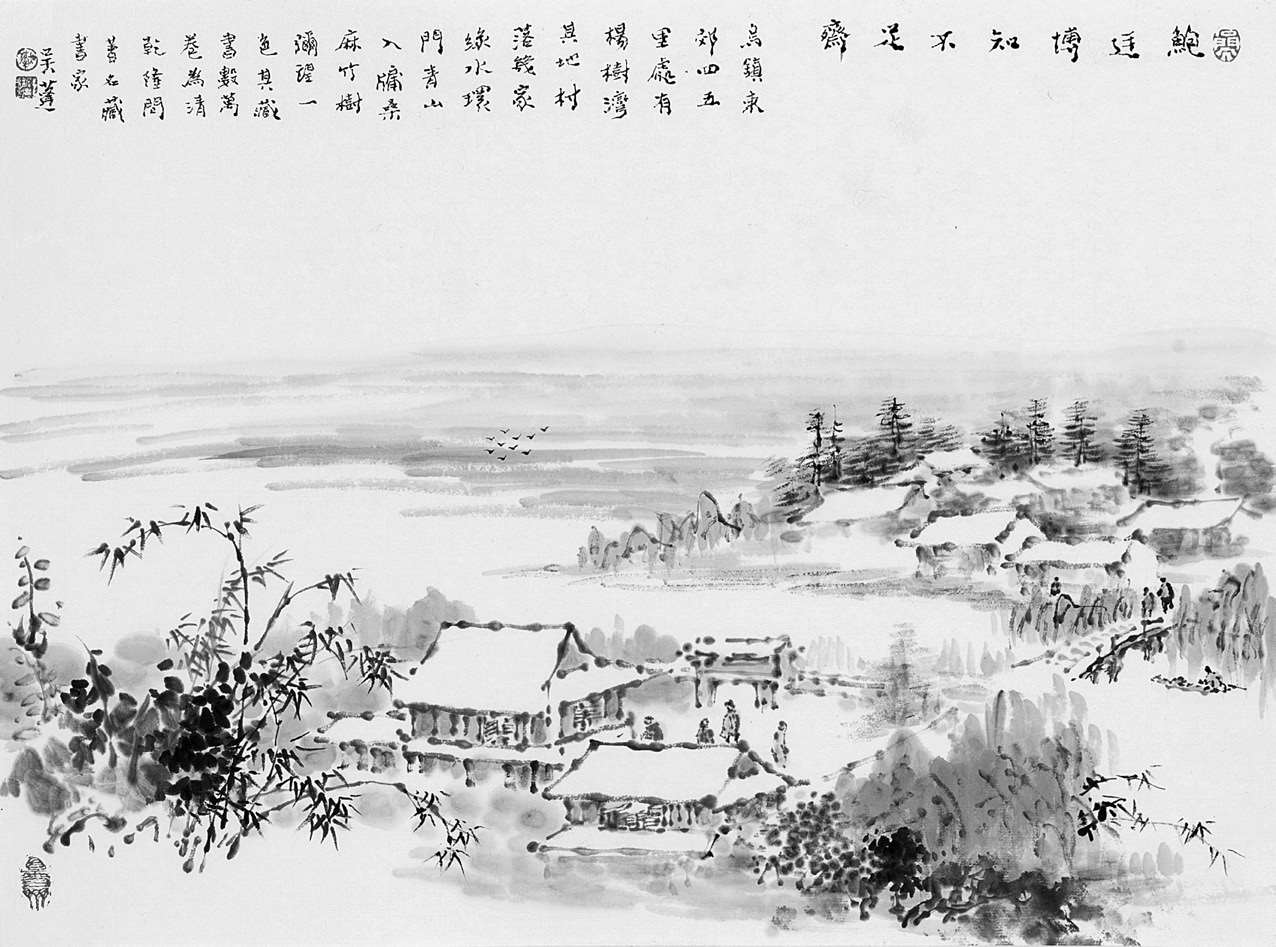 鮑廷博知不足齋
烏鎮東
郊四五
里處有
楊樹灣
其地村
落幾家
綠水環
門青山
入牖桑
麻竹樹
彌望一
色其藏
書數萬
卷為清
乾隆間
著名藏
書家